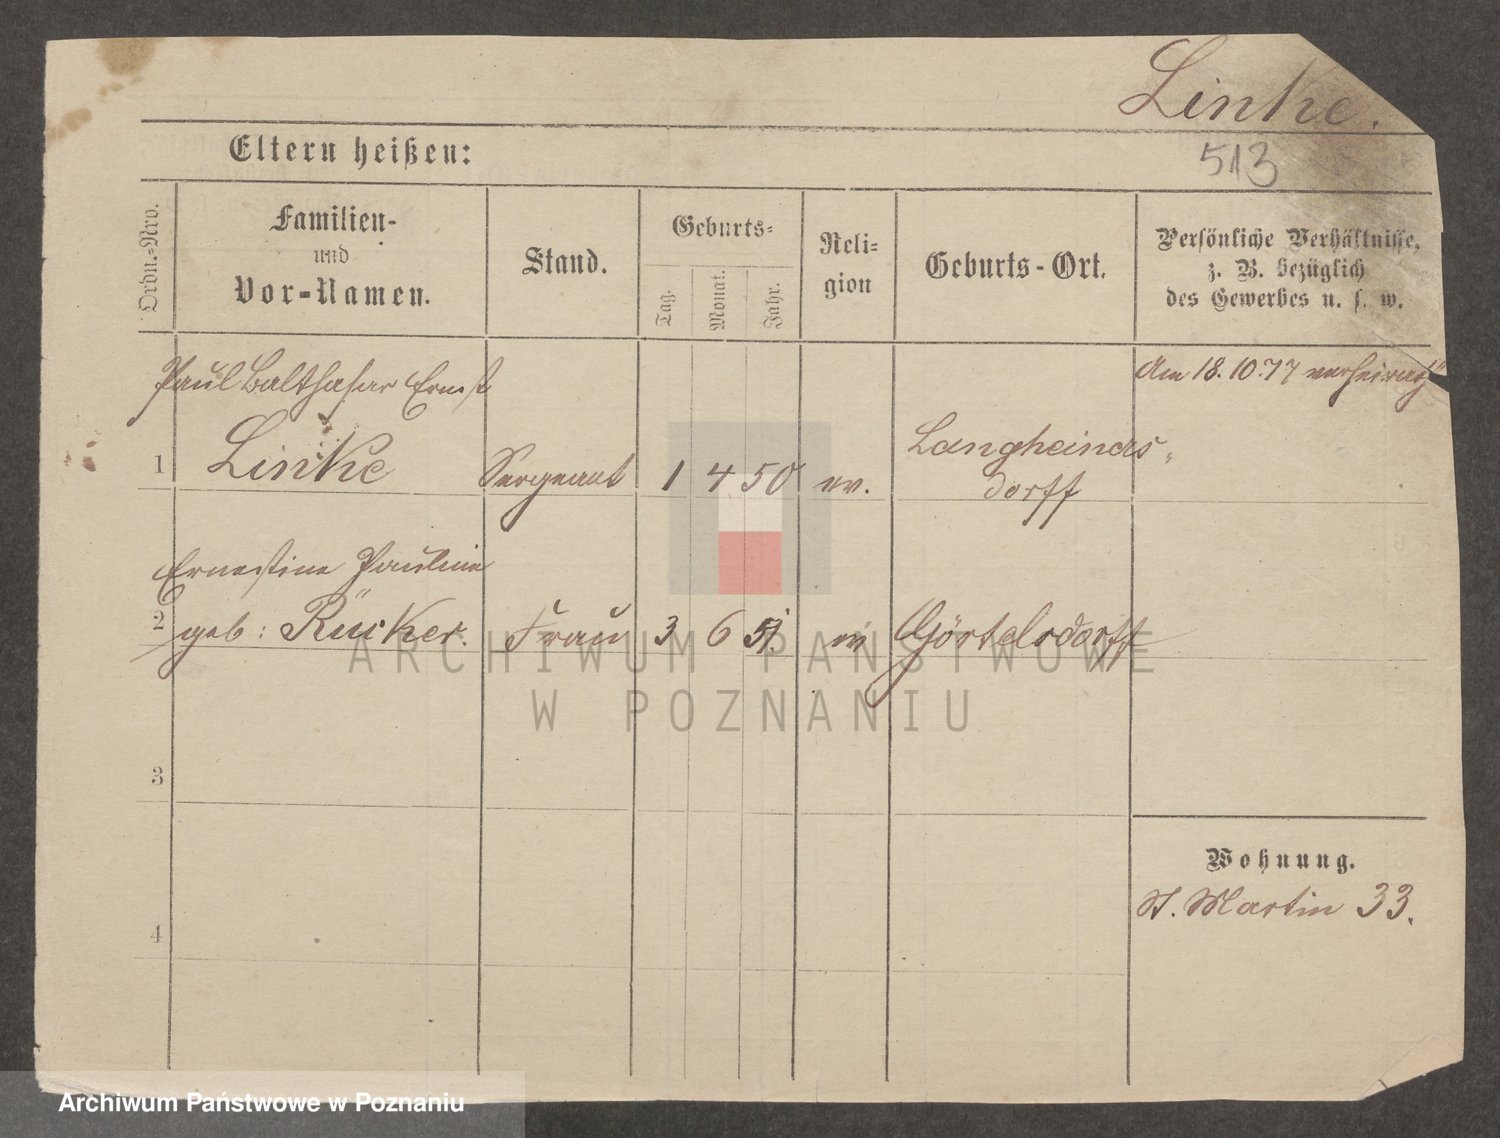 Linke.
513
Eltern heißen:
Ordn.-Nro.
Familien-
und
Vor-Namen.
Stand.
Geburts-
Tag.
Monat.
Jahr.
Reli-
gion
Geburts-Ort.
Persönliche Verhältnisse,
z. B. bezüglich
des Gewerbes u. s. w.
Paul Balthasar Ernst
Am 18.10.77 verheirath
1 Linke Sergeant 1 4 50 ev. Langheiners-
dorff
Ernestine Pauline
2 geb: Rücker. Frau 3 6 51. ev Görtelsdorff
ARCHIWUM PAŃSTWOWE
W POZNANIU
3
Wohnung.
St. Martin 33.
4
Archiwum Państwowe w Poznaniu